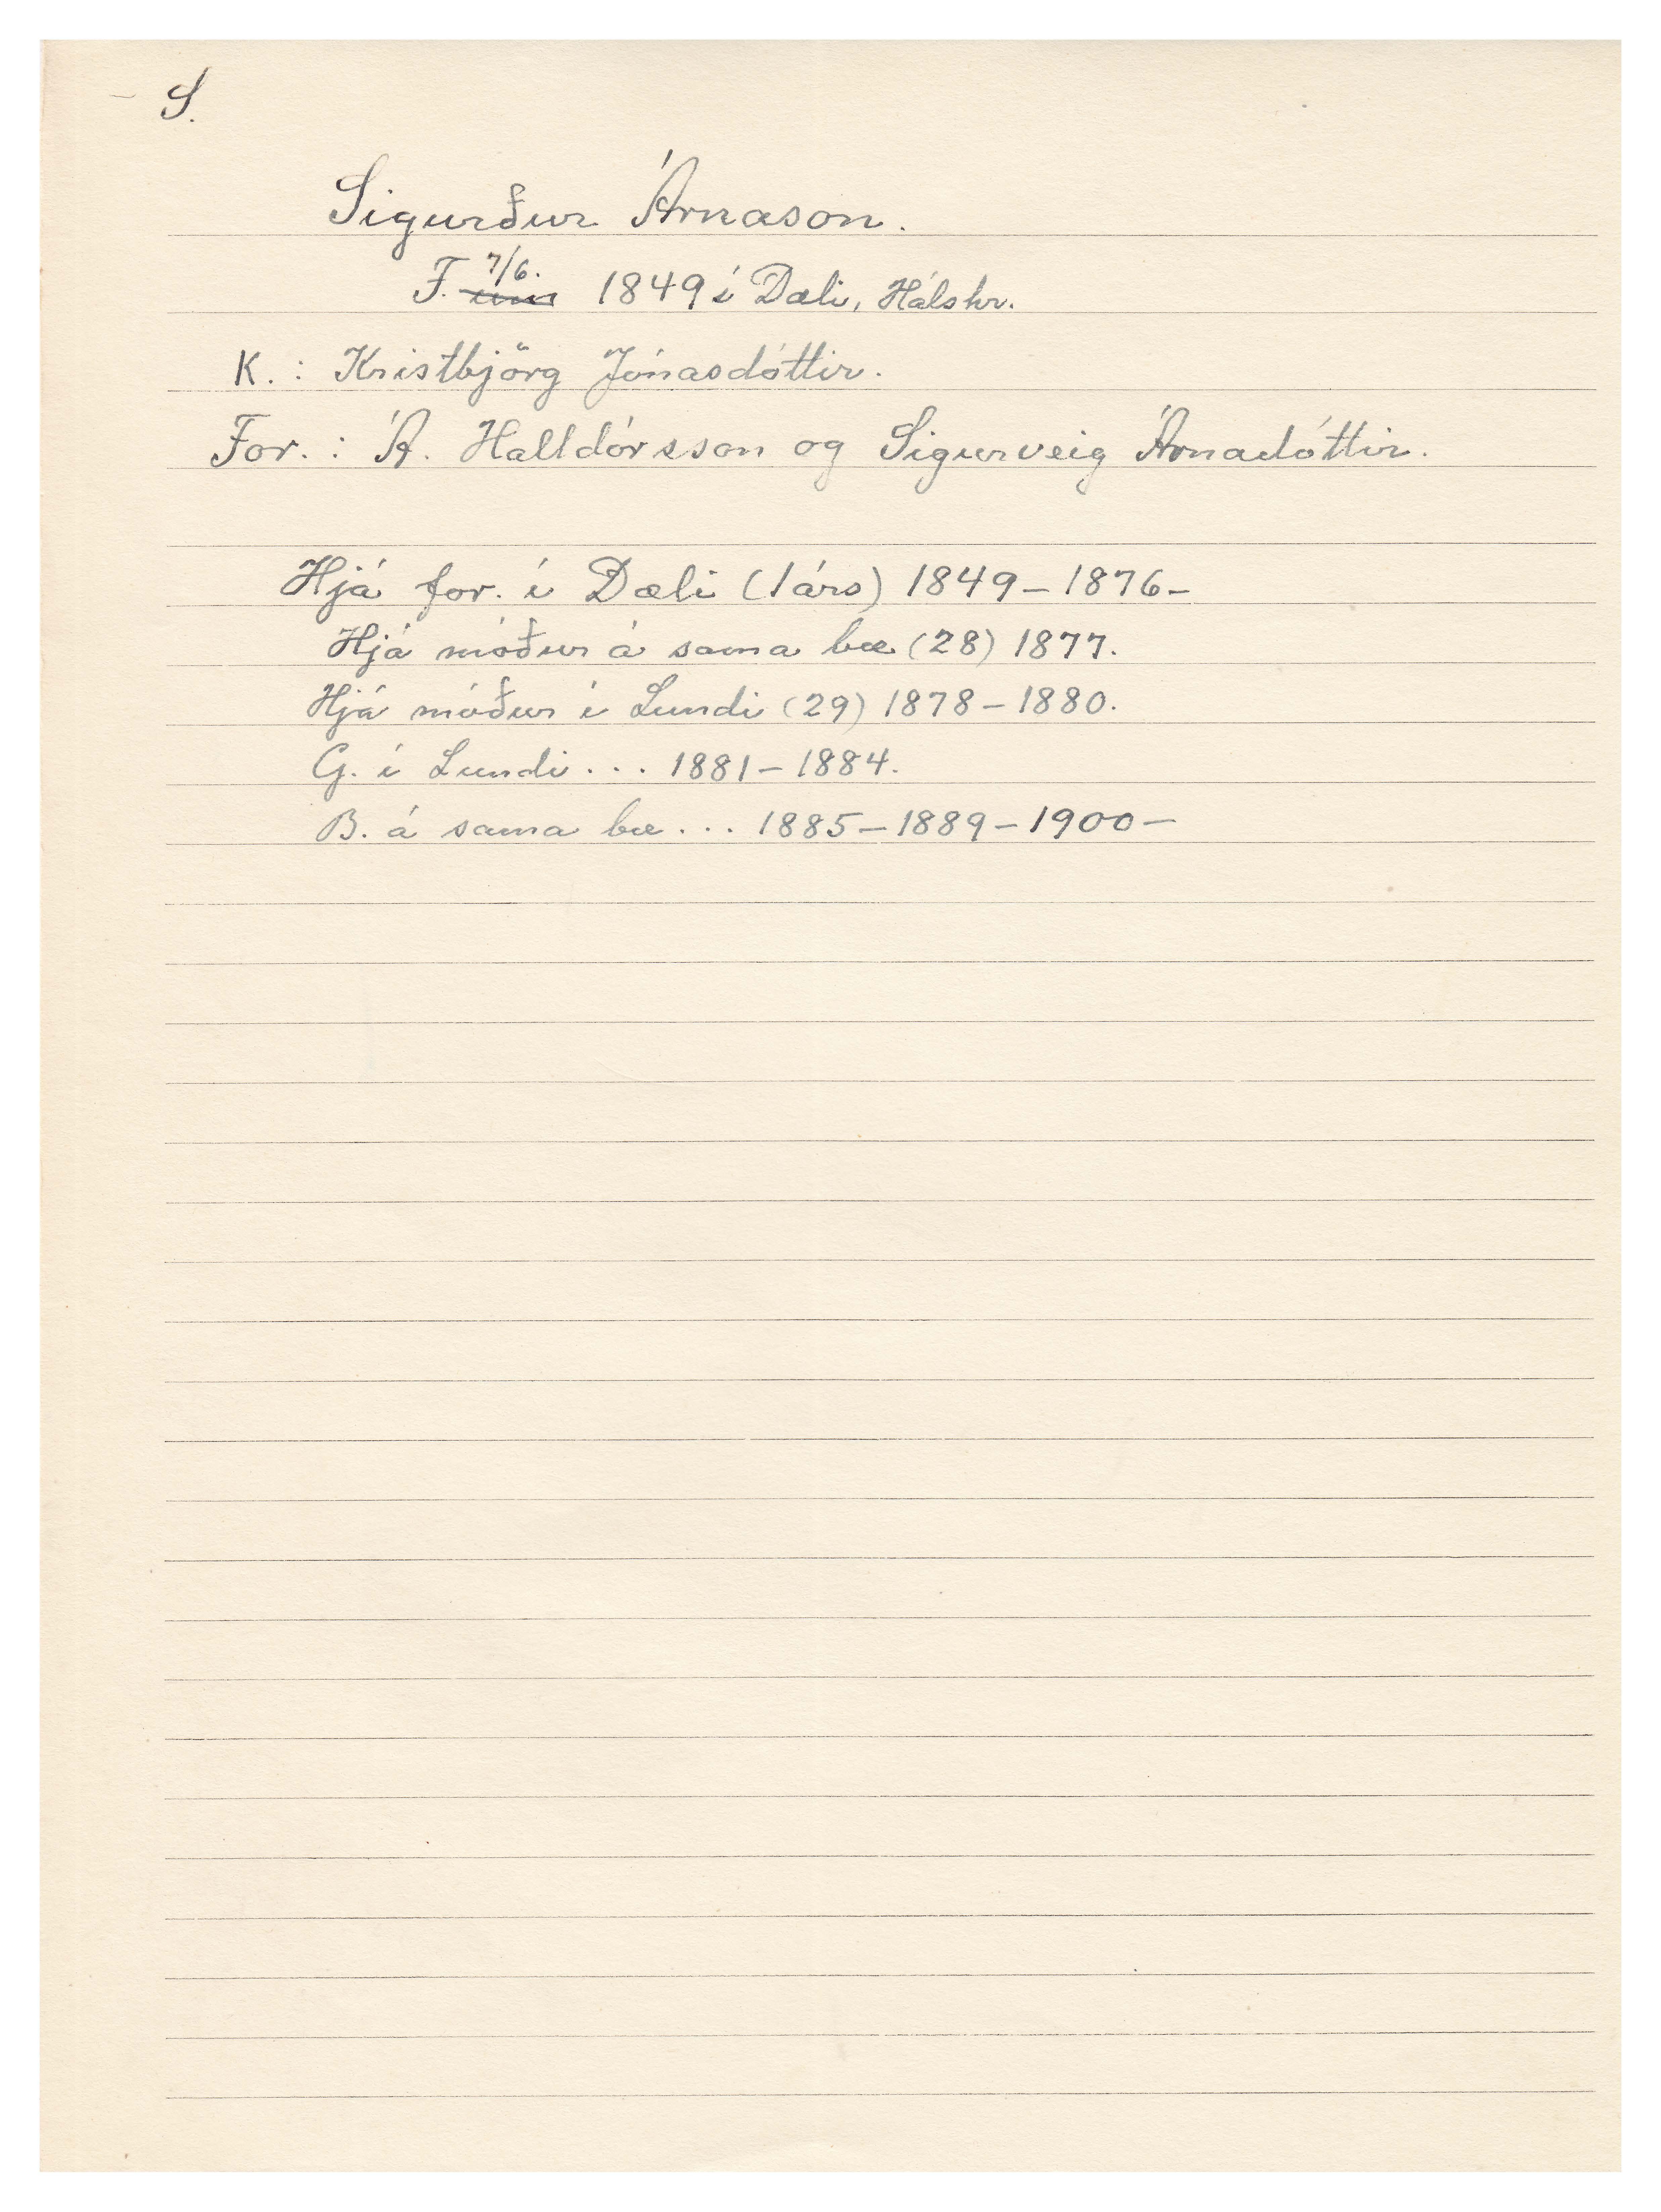 – S.
Sigurður Árnason.
F. um 7/6. 1849 í Dæli, Hálshr.
K. : Kristbjörg Jónasdóttir.
For. : Á. Halldórsson og Sigurveig Árnadóttir.
Hjá for. í Dæli (1 árs) 1849 – 1876 –
Hjá móður á sama bæ (28) 1877.
Hjá móður í Lundi (29) 1878 – 1880.
G. í Lundi . . . 1881 – 1884.
B. á sama bæ . . . 1885 – 1889 – 1900 –